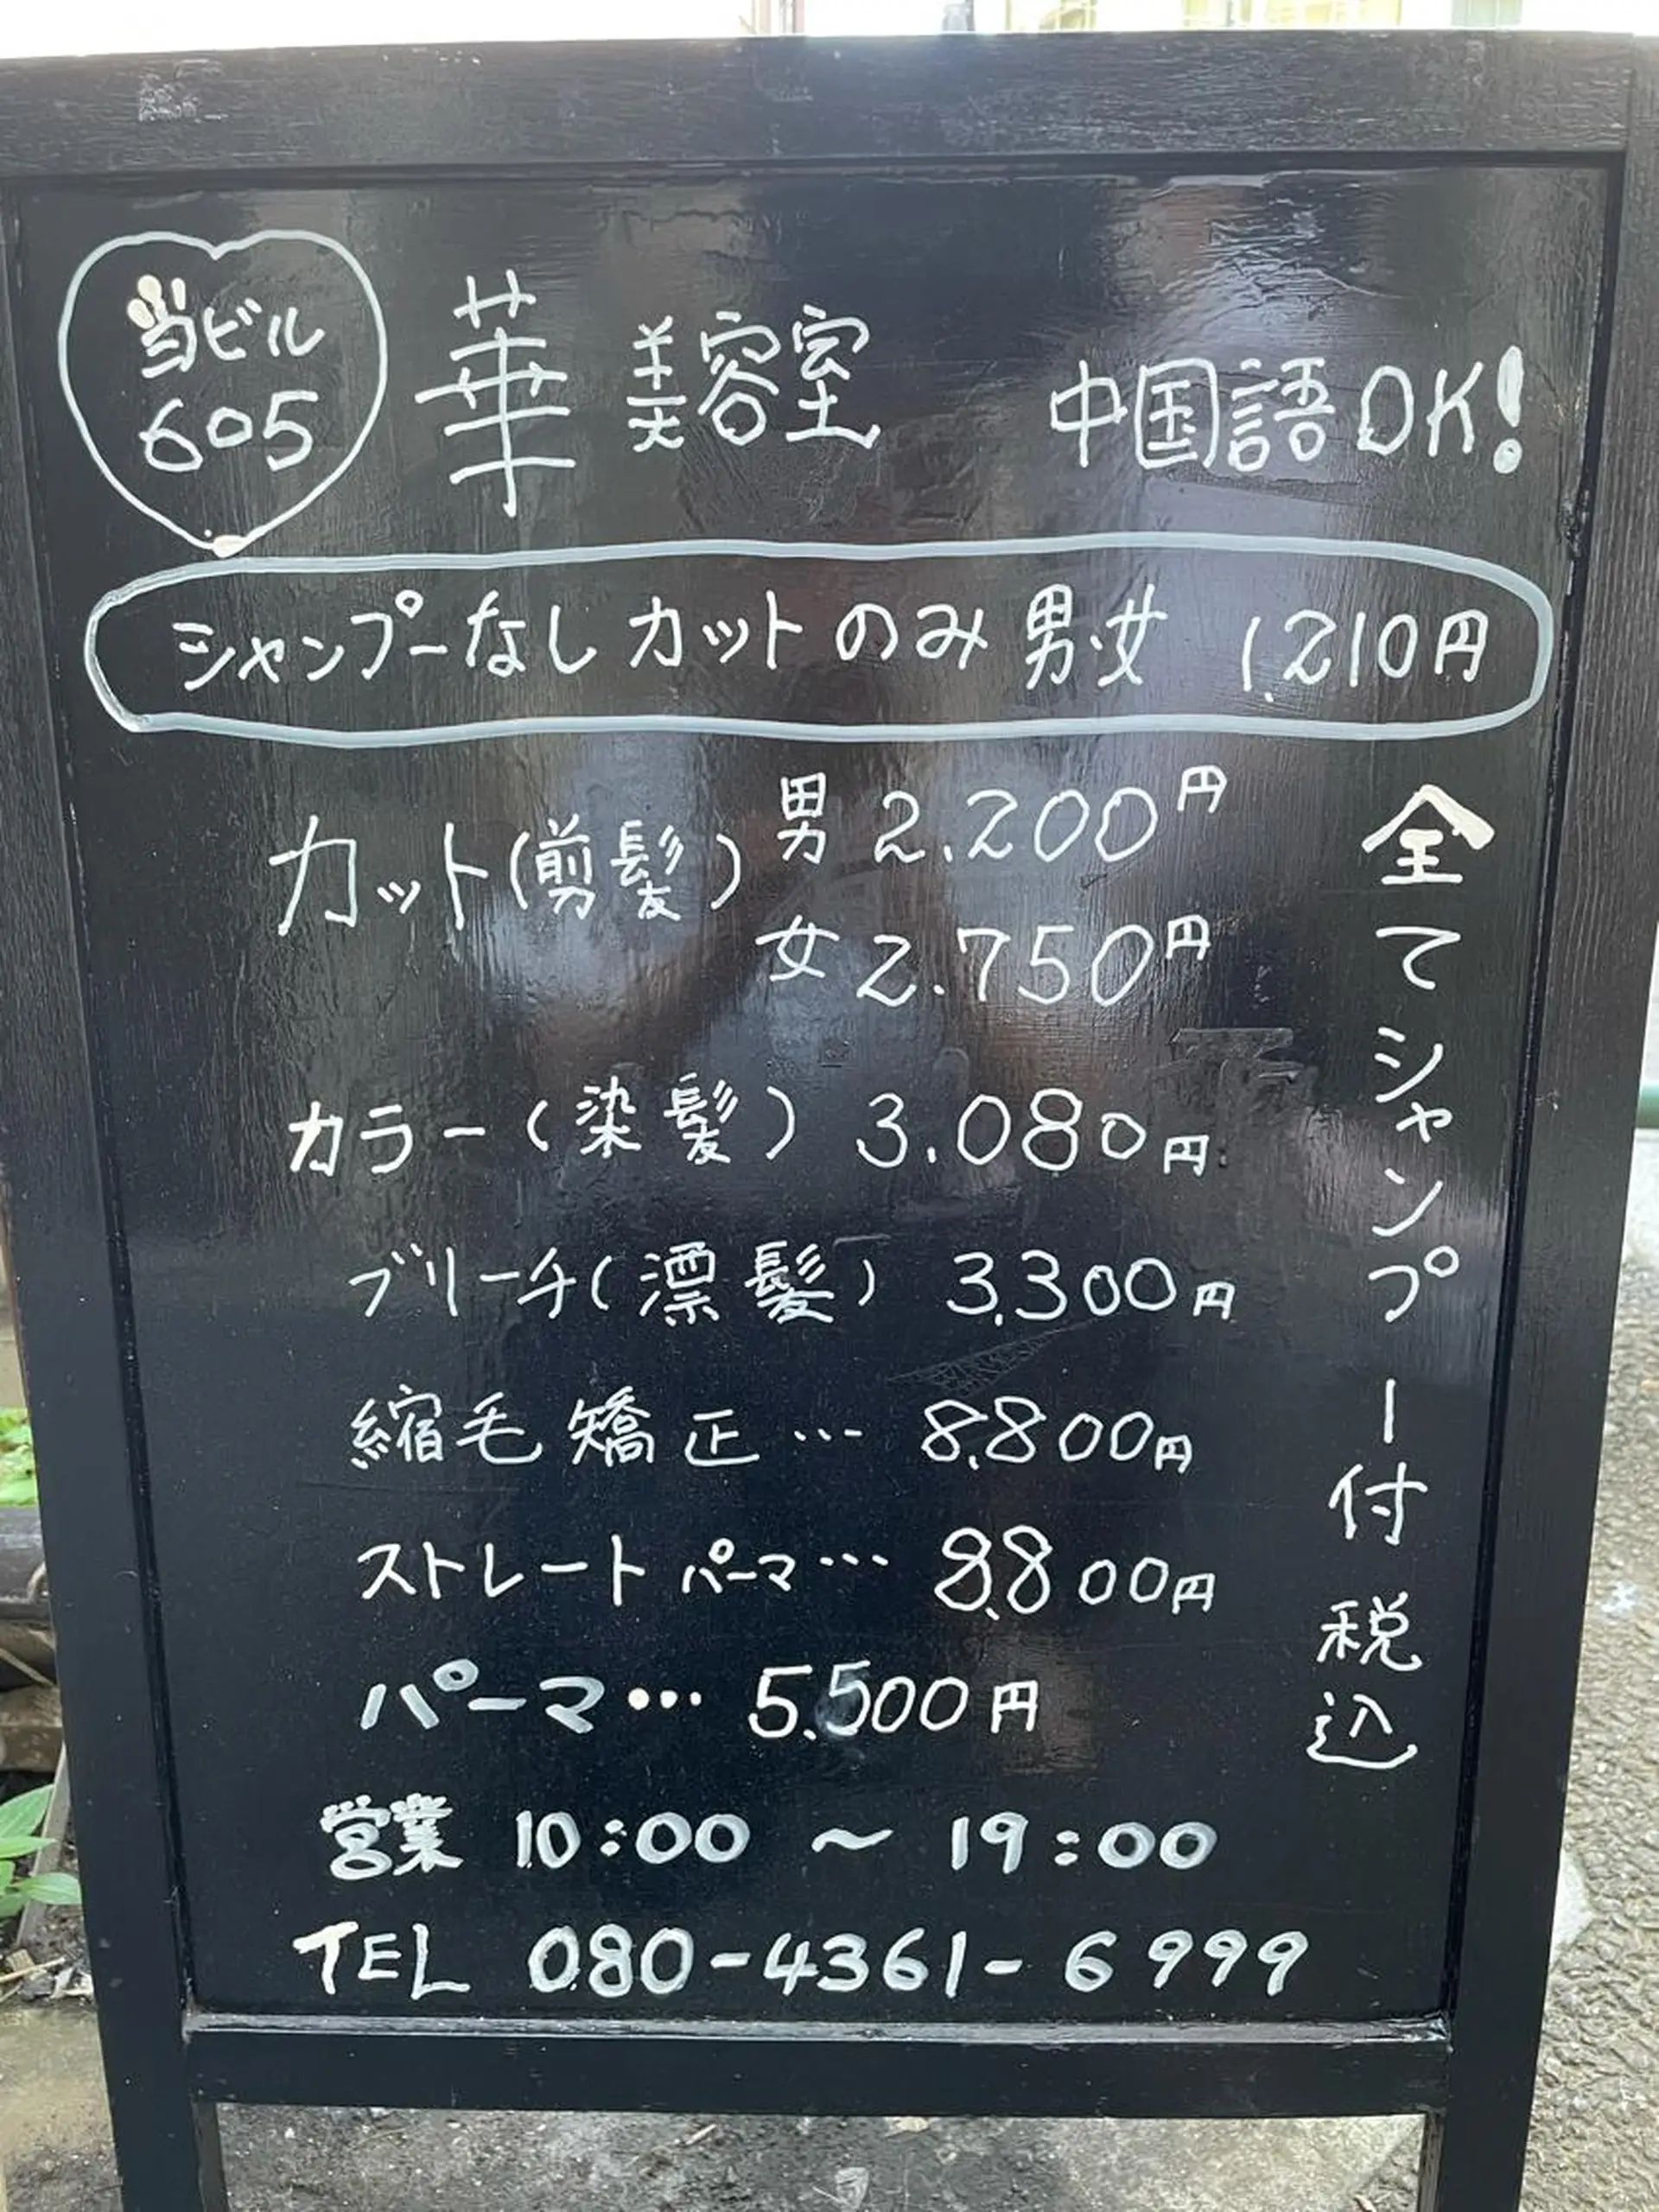 当ビル
605
華 美容室 中国語OK!
シャンプーなしカットのみ 男・女 1,210円
カット(剪髪) 男 2.200円
女 2.750円
カラー(染髪) 3.080円
ブリーチ(漂髪) 3,300円
縮毛矯正… 8,800円
ストレートパーマ… 8,800円
パーマ… 5,500円
全てシャンプー付 税込
営業 10:00 ~ 19:00
TEL 080-4361-6999